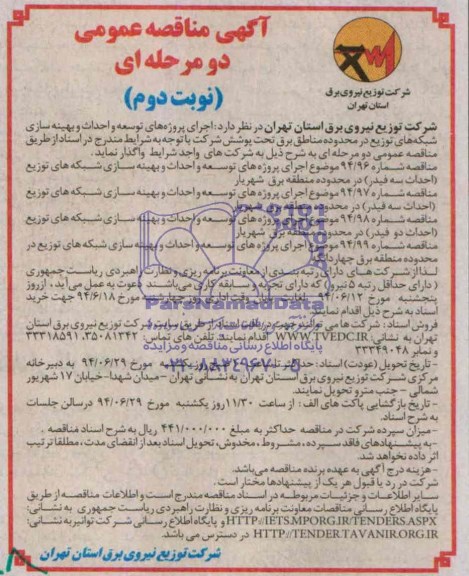 آگهی مناقصه عمومی
دو مرحله ای
(نوبت دوم)
شرکت توزیع نیروی برق
استان تهران
شرکت توزیع نیروی برق استان تهران در نظر دارد: اجرای پروژه‌های توسعه و احداث و بهینه سازی
شبکه‌های توزیع در محدوده مناطق برق تحت پوشش شرکت با توجه به شرایط مندرج در اسناد از طریق
مناقصه عمومی دو مرحله ای به شرح ذیل به شرکت های واجد شرایط واگذار نماید.
مناقصه شماره ۹۴/۹۶ موضوع اجرای پروژه های توسعه و احداث و بهینه سازی شبکه های توزیع
(احداث سه فیدر) در محدوده منطقه برق شهریار
مناقصه شماره ۹۴/۹۷ موضوع اجرای پروژه های توسعه و احداث و بهینه سازی شبکه های توزیع
(احداث سه فیدر) در محدوده منطقه برق
مناقصه شماره ۹۴/۹۸ موضوع اجرای پروژه های توسعه و احداث و بهینه سازی شبکه های توزیع
(احداث دو فیدر) در محدوده منطقه برق شهریار
مناقصه شماره ۹۴/۹۹ موضوع اجرای پروژه های توسعه و احداث و بهینه سازی شبکه های توزیع در
محدوده منطقه برق چهاردانگه
لذا از شرکت های دارای رتبه بندی از معاونت برنامه ریزی و نظارت راهبردی ریاست جمهوری
(دارای حداقل رتبه ۵ نیرو) که دارای تجربه و سابقه کاری می‌باشند دعوت به عمل می‌آید، از روز
پنجشنبه مورخ ۹۴/۰۶/۱۲ لغایت پایان وقت اداری روز چهارشنبه مورخ ۹۴/۶/۱۸ جهت خرید
اسناد به شرح ذیل اقدام نمایند.
فروش اسناد: شرکت ها می توانند جهت دریافت اسناد از طریق سایت شرکت توزیع نیروی برق استان
تهران به نشانی WWW.TVEDC.IR اقدام نمایند. تلفن های تماس: ۳۵۰۸۱۳۴۲، ۳۳۳۱۸۵۹۱
و نمابر ۳۳۳۴۹۰۴۸
- تاریخ تحویل (عودت) اسناد: حداکثر تا یکشنبه مورخ ۹۴/۰۶/۲۹ به دبیرخانه
مرکزی شرکت توزیع نیروی برق استان تهران به نشانی تهران - میدان شهدا - خیابان ۱۷ شهریور
شمالی - جنب مترو تحویل نمایند.
- تاریخ بازگشایی پاکت های الف: از ساعت ۱۱/۳۰ روز یکشنبه مورخ ۹۴/۰۶/۲۹ در سالن جلسات
به شرح اسناد.
- میزان سپرده شرکت در مناقصه حداکثر به مبلغ ۴۴۱/۰۰۰/۰۰۰ ریال به شرح اسناد مناقصه.
- به پیشنهادهای فاقد سپرده، مشروط، مخدوش، تحویل اسناد بعد از انقضای مدت، مطلقا ترتیب
اثر داده نخواهد شد.
- هزینه درج آگهی به عهده برنده مناقصه می‌باشد.
شرکت در رد یا قبول هر یک از پیشنهادها مختار است.
سایر اطلاعات و جزئیات مربوطه در اسناد مناقصه مندرج است و اطلاعات مناقصه از طریق
پایگاه اطلاع رسانی مناقصات معاونت برنامه ریزی و نظارت راهبردی ریاست جمهوری به نشانی:
HTTP://IETS.MPORG.IR/TENDERS.ASPX و پایگاه اطلاع رسانی شرکت توانیر به نشانی:
HTTP://TENDER.TAVANIR.ORG.IR در دسترس می باشد.
شرکت توزیع نیروی برق استان تهران
ParsNamadData
پایگاه اطلاع رسانی مناقصه و مزایده
۰۲۱-۸۸۳۴۹۶۷۰-۵